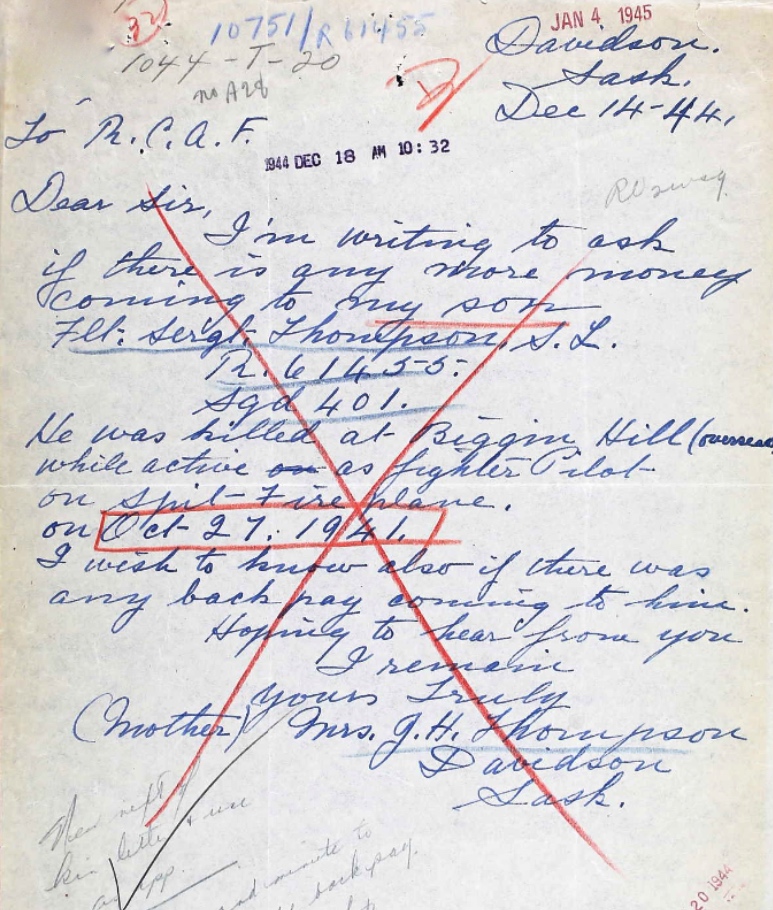 JAN 4 1945
32
10751/R61455
Davidson.
1044-T-20
Sask.
no A28
Dec 14-44.
To R.C.A.F.
1944 DEC 18 AM 10:32
Dear Sir,
I'm writing to ask
if there is any more money
coming to my son
Flt: Serg't. Thompson. S.L.
R. 61455.
Sqd 401.
He was killed at Biggin Hill (overseas
while active on as fighter Pilot
on Spit-Fire plane.
on Oct 27. 1941.
I wish to know also if there was
any back pay coming to him.
Hoping to hear from you
I remain
yours Truly
(Mother) Mrs. J.H. Thompson
Davidson
Sask.
New next of
kin letter & use
app.
and minute to
back pay.
20 1944